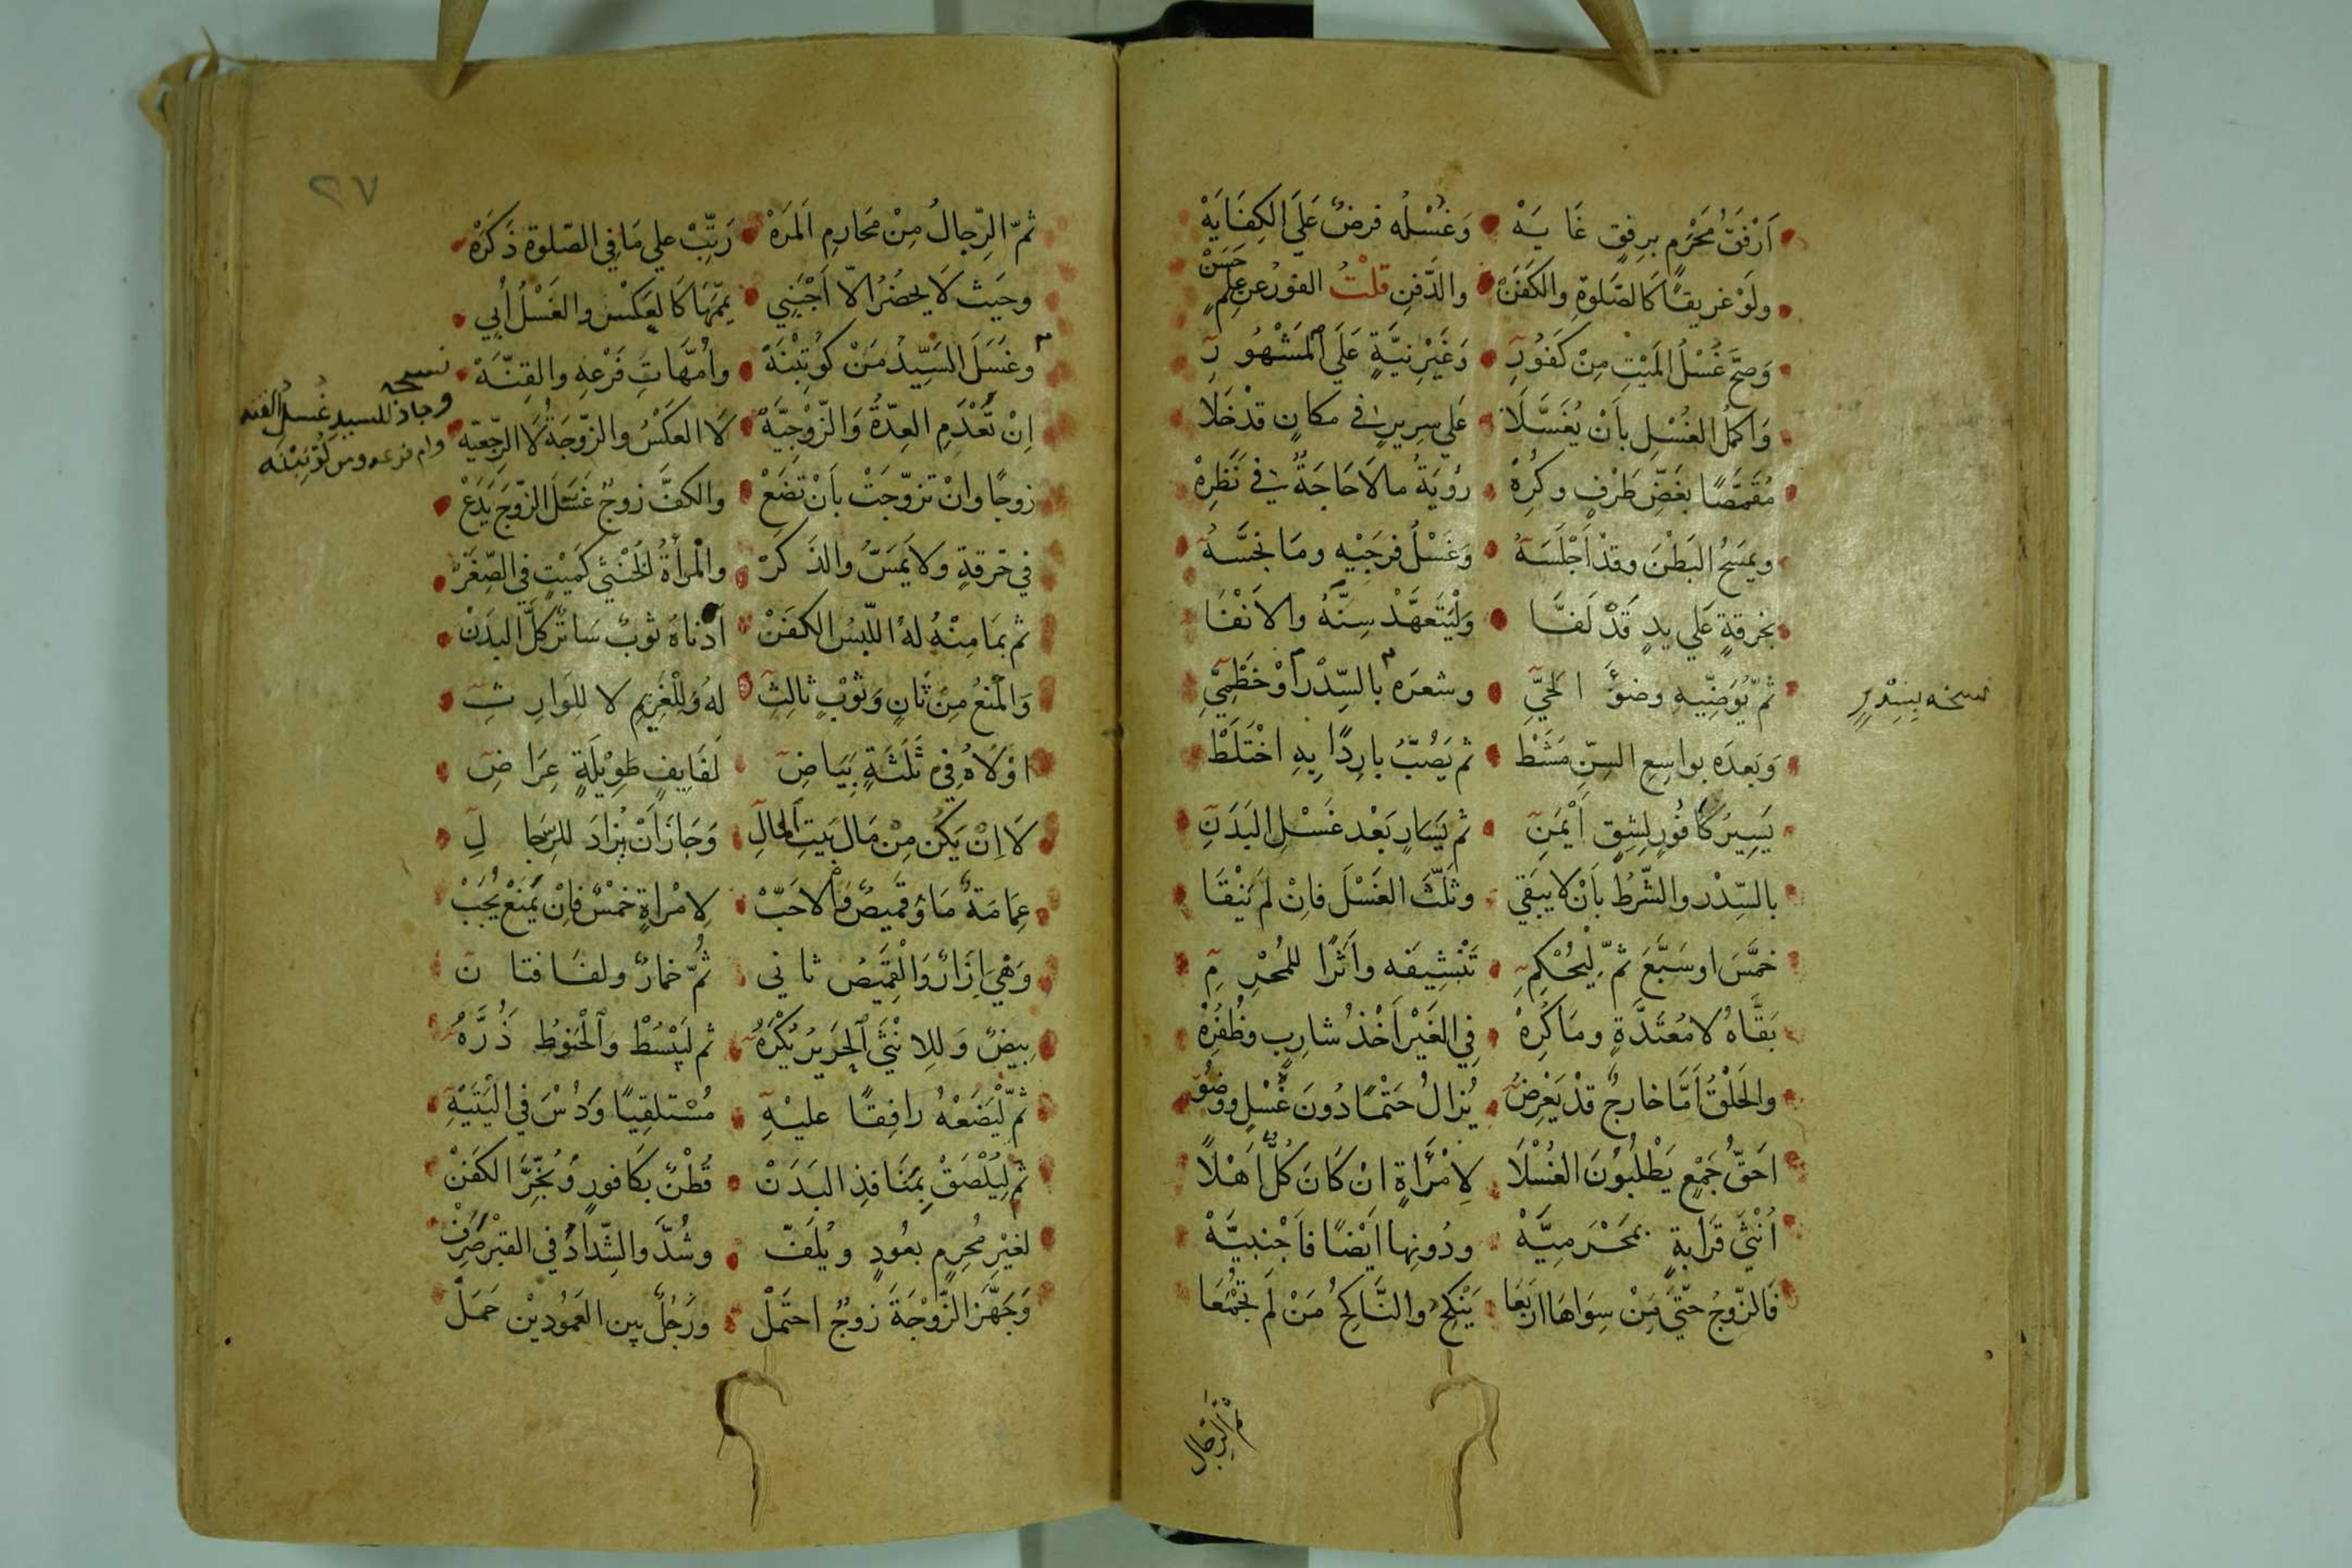 اَرْفَقُ مَحْرَمٍ برِفقٍ غَايَهْ وَغُسْلُه فرضٌ عَلَى الكِفَايَهْ
ولَوْ غريقًا كَالصَّلوةِ والكَفَنْ والدَّفنِ قلْتُ الفورُ عن عِلمٍ حَسَنْ
وَصحَّ غُسْلُ المَيْتِ مِنْ كَفُورِ وَغَيْرِ نِيَّةٍ عَلَى المَشْهُورِ
وَاكملُ الغُسْلِ بأَنْ يُغَسَّلَا عَلي سرِيرٍ في مكانٍ قدْ خَلَا
مُقَمَّصًا بغَضِّ طَرْفٍ وكُرِهْ رُؤيَةُ مالاَ حَاجَةٌ في نَظَرِهْ
ويمسَحُ البَطْنَ وقدْ اَجْلَسَهُ وَغَسْلُ فرجَيْهِ ومَا نجَّسَهُ
بخرقةٍ عَلي يدٍ قَدْ لَفَّا وَلْيَتَعَهَّدْ سِنَّهُ والاَنْفَا
ثمّ يُوَضِّيهِ وضؤَ الحَيِّ وشعرَه بالسِّدْرِ اَوْ خَطْمِيِّ
نسخه بِسِدْرٍ
وَبَعدَه بواسِعِ السِّنِّ مَشَطْ ثم يَصُبُّ بارِدًا بِهِ اخْتَلَطْ
يَسِيرُ كَافُورٍ لِشِقٍّ اَيْمَنِ ثم يَسَارٍ بَعْد غَسْلِ البَدَنِ
بالسِّدْر والشَّرطُ بَأنْ لا يبَقي وثَلّثَ الغَسْلَ فاِنْ لَم يَنْقَا
خمَّسَ او سَبَّعَ ثمّ لِيُحْكِمِ تَنْشِيفَه واَثَرًا للمُحْرِمِ
بَقَّاهُ لا مُعْتَدَّةٍ ومَا كُرِهْ فِي الغَيْرِ اَخْذُ شارِبٍ وظُفُرِهْ
والحَلْقُ اَمَّا خارجٌ قدْ يَعْرِضُ يُزالُ حَتْمًا دُونَ غُسْلٍ ووَضُو
احَقُّ جَمْعٍ يَطْلبُوْنَ الغُسْلَا لاِمْرَاَةٍ انْ كَانَ كُلٌّ اَهْلًا
اُنْثَى قَرَابةٍ بمَحْرَمِيَّهْ ودُونِها ايَضًا فَاَجْنبِيَّهْ
فَالزّوجُ حتّى مَنْ سِوَاهَا اربَعَا يَنْكِحُ والنَّاكِحُ مَنْ لَم تجُمْعَا
ثمّ الرّجال
٢٧
ثمّ الرِّجالُ مِنْ مَحَارِمِ المَرَهْ رَتِّبْ علي مَا في الصّلوة ذَكَرَهْ
وحَيث لَا يحضُرُ الاّ اَجْنَبِي يمَّمَهَا كَالعَكْسِ والغَسْلُ اُبِي
وغَسَلَ السَيِّدُ مَنْ كُوتِبْنَهْ واُمَّهَاتِ فَرْعِهِ والقِنَّهْ
نسخه
وجاز للسيد غُسلُ القنه
وام فرعه ومن كُوتِبْنَه
اِنْ تُعْدَمِ العِدَّةُ وَالزَّوْجيَّهْ لَا العَكْسُ والزّوجَةُ لَا الرَّجعيّه
زوجًا وانْ تزوّجَتْ باَنْ تَضَعْ والكفَّ زوجٌ غَسَلَ الزّوجَ يَدَعْ
في خرقةٍ ولا يَمَسَّ والذَكَرْ والمرأةُ الخُنْثَى كَميْتٍ في الصِّغَرْ
ثم بمَا مِنْهُ لهُ اللّبسُ الكفَنْ اَدْناهُ ثوبٌ سَاترٌ كلَّ البدَنْ
وَالمنعُ مِنْ ثَانٍ وَثَوْبٍ ثالِثِ لهُ وَلِلْغَرِيمِ لا للِوَارِثِ
اوْلَاهُ فِي ثَلَثَةٍ بَيَاضِ لَفَايِفٍ طَوِيْلَةٍ عِرَاضِ
لَا اِنْ يَكُن مِنْ مَالِ بَيتِ المالِ وَجَازَ اَنْ يُزادَ للرِجَالِ
عِمَامَةٌ مَا وَ قَميصٌ وَالاحَبّ لاِمْراةٍ خمْسٌ فاِنْ يُمنَعْ يُجَبْ
وَهْيَ اِزَارٌ وَالْقَمَيصُ ثاني ثُمّ خمارٌ ولفَافتانِ
بِيضٌ وَللِانْثَى الحَرِيرُ يُكْرَهُ ثم ليَبْسُطْ وَالحَنوُطُ ذُرَّهُ
ثمّ ليَضَعْهُ رافِقًا عليْهِ مُسْتلقِيًا وَدُسْ في اليَتَيْهِ
ثم ليُلْصَقْ بمَنَافذِ البَدَنْ قُطْنٌ بكَافورٍ وَبُخِّرَ الكَفَنْ
لغَيْرِ مُحْرِمٍ بعُودٍ ويُلَفّ وشُدَّ والشِّدادُ في القبْرِ صُرِفْ
وَجَهَّزَ الزَّوْجَةَ زوجٌ احتَملْ ورَجُلٌ بين العَمُوديْن حَمَلْ